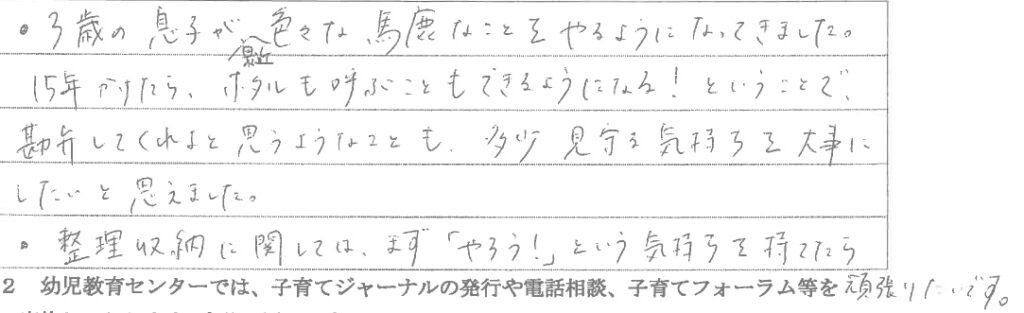 ・3歳の息子が最近色々な馬鹿なことをやるようになってきました。
15年かけたら、ホタルも呼ぶこともできるようになる！ということで、
勘弁してくれよと思うようなことも、多少見守る気持ちを大事に
したいと思えました。
・整理収納に関しては、まず「やろう！」という気持ちを持てたら
2 幼児教育センターでは、子育てジャーナルの発行や電話相談、子育てフォーラム等を 頑張りたいです。